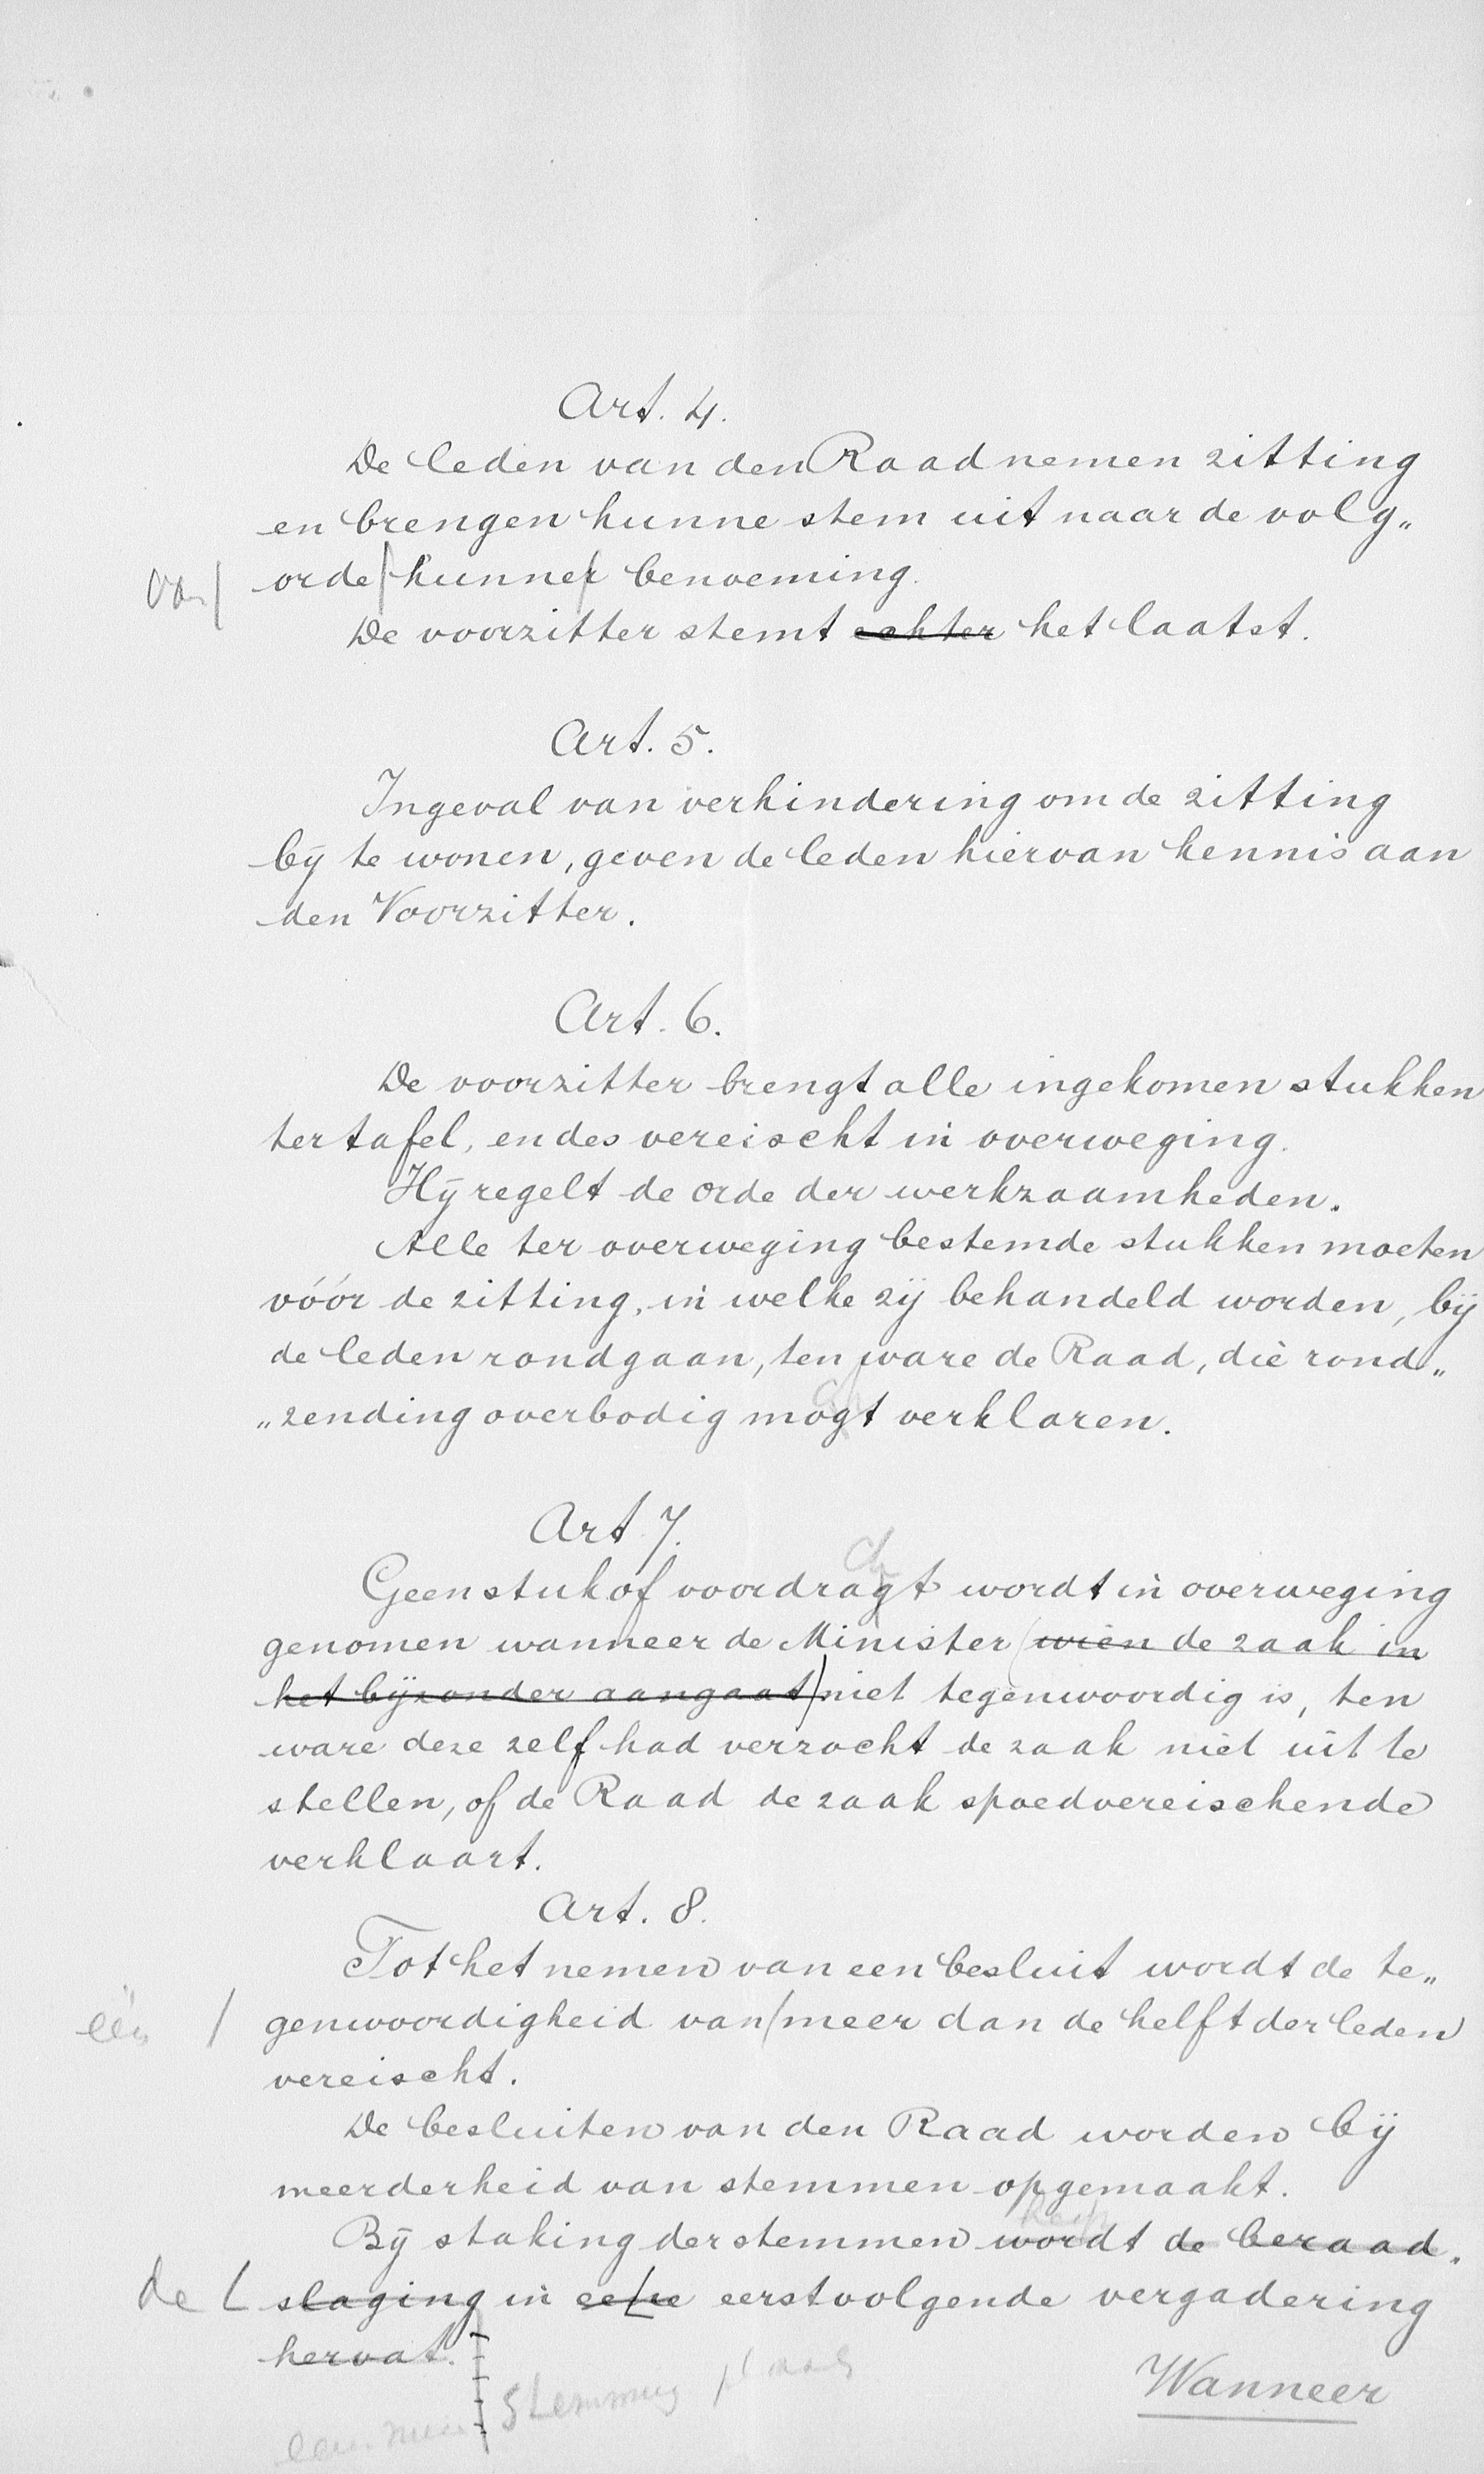 Art. 4.
De leden van den Raad nemen zitting
en brengen hunne stem uit naar de volg„
van orde hunner benoeming.
De voorzitter stemt echter het laatst.
Art. 5.
Ingeval van verhindering om de zitting
bij te wonen, geven de leden hiervan kennis aan
den Voorzitter.
Art. 6.
De voorzitter brengt alle ingekomen stukken
ter tafel, en des vereischt in overweging.
Hij regelt de orde der werkzaamheden.
Alle ter overweging bestemde stukken moeten
vóór de zitting, in welke zij behandeld worden, bij
de leden rondgaan, ten ware de Raad, die rond„
„zending overbodig mogt verklaren.
Art. 7.
ch
Geen stuk of voordragt wordt in overweging
genomen wanneer de Minister (wien de zaak in
het bijzonder aangaat) niet tegenwoordig is, ten
ware deze zelf had verzocht de zaak niet uit te
stellen, of de Raad de zaak spoedvereischende
verklaart.
Art. 8.
Tot het nemen van een besluit wordt de te„
één / genwoordigheid van meer dan de helft der leden
vereischt.
De besluiten van den Raad worden bij
meerderheid van stemmen opgemaakt.
Bij staking der stemmen wordt de beraad„
de slaging in eene eerstvolgende vergadering
hervat.
stemming plaats
Wanneer